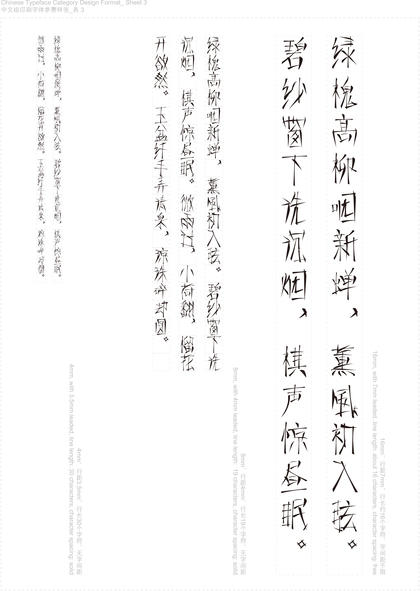 Chinese Typeface Category Design Format_ Sheet 3
中文组印刷字体参赛样张_表 3
绿槐高柳咽新蝉，薰風初入弦。
碧纱窗下洗沉烟，棋声惊昼眠。
16mm² 行距7mm² 行长约16个字符，字间距不限
16mm, with 7mm leaded, line length: about 16 characters, character spacing: free
绿槐高柳咽新蝉，薰風初入弦。碧纱窗下洗
沉烟，棋声惊昼眠。微雨过，小荷翻，榴花
开欲然。玉盆纤手弄清泉，琼珠碎却圆。
8mm² 行距4mm² 行长19个字符，无字间距
8mm, with 4mm leaded, line length: 19 characters, character spacing: solid
绿槐高柳咽新蝉，薰風初入弦。碧纱窗下洗沉烟，棋声惊昼眠。
微雨过，小荷翻，榴花开欲然。玉盆纤手弄清泉，琼珠碎却圆。
4mm² 行距3.5mm² 行长30个字符，无字间距
4mm, with 3.5mm leaded, line length: 30 characters, character spacing: solid